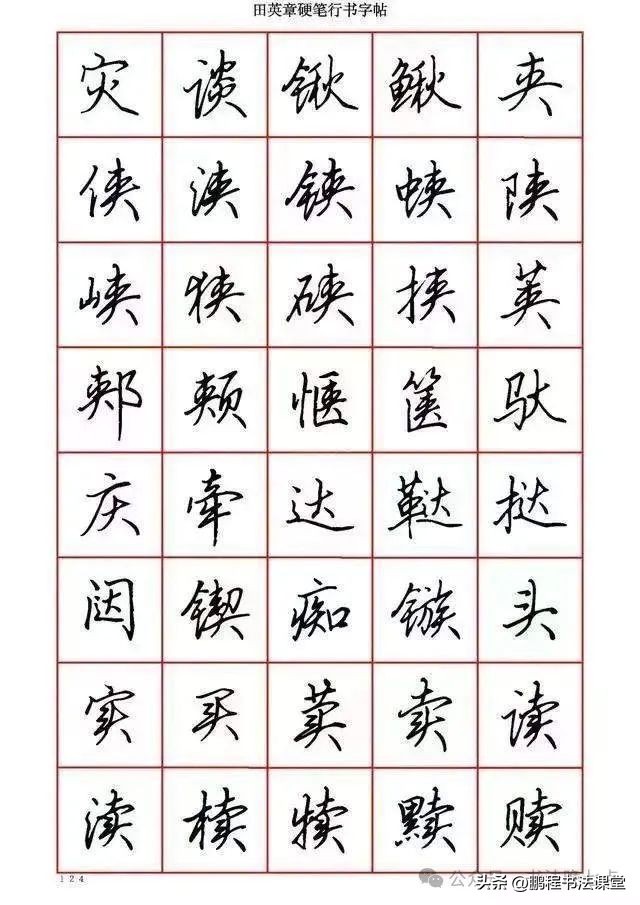 田英章硬笔行书字帖
灾谈锹鳅夹
侠浃铗蛱陕
峡狭硖挟荚
郏颊惬箧驮
庆牵达鞑挞
闼锲痴镞头
实买荬卖读
渎椟犊黩赎
124
头条@鹏程书法课堂